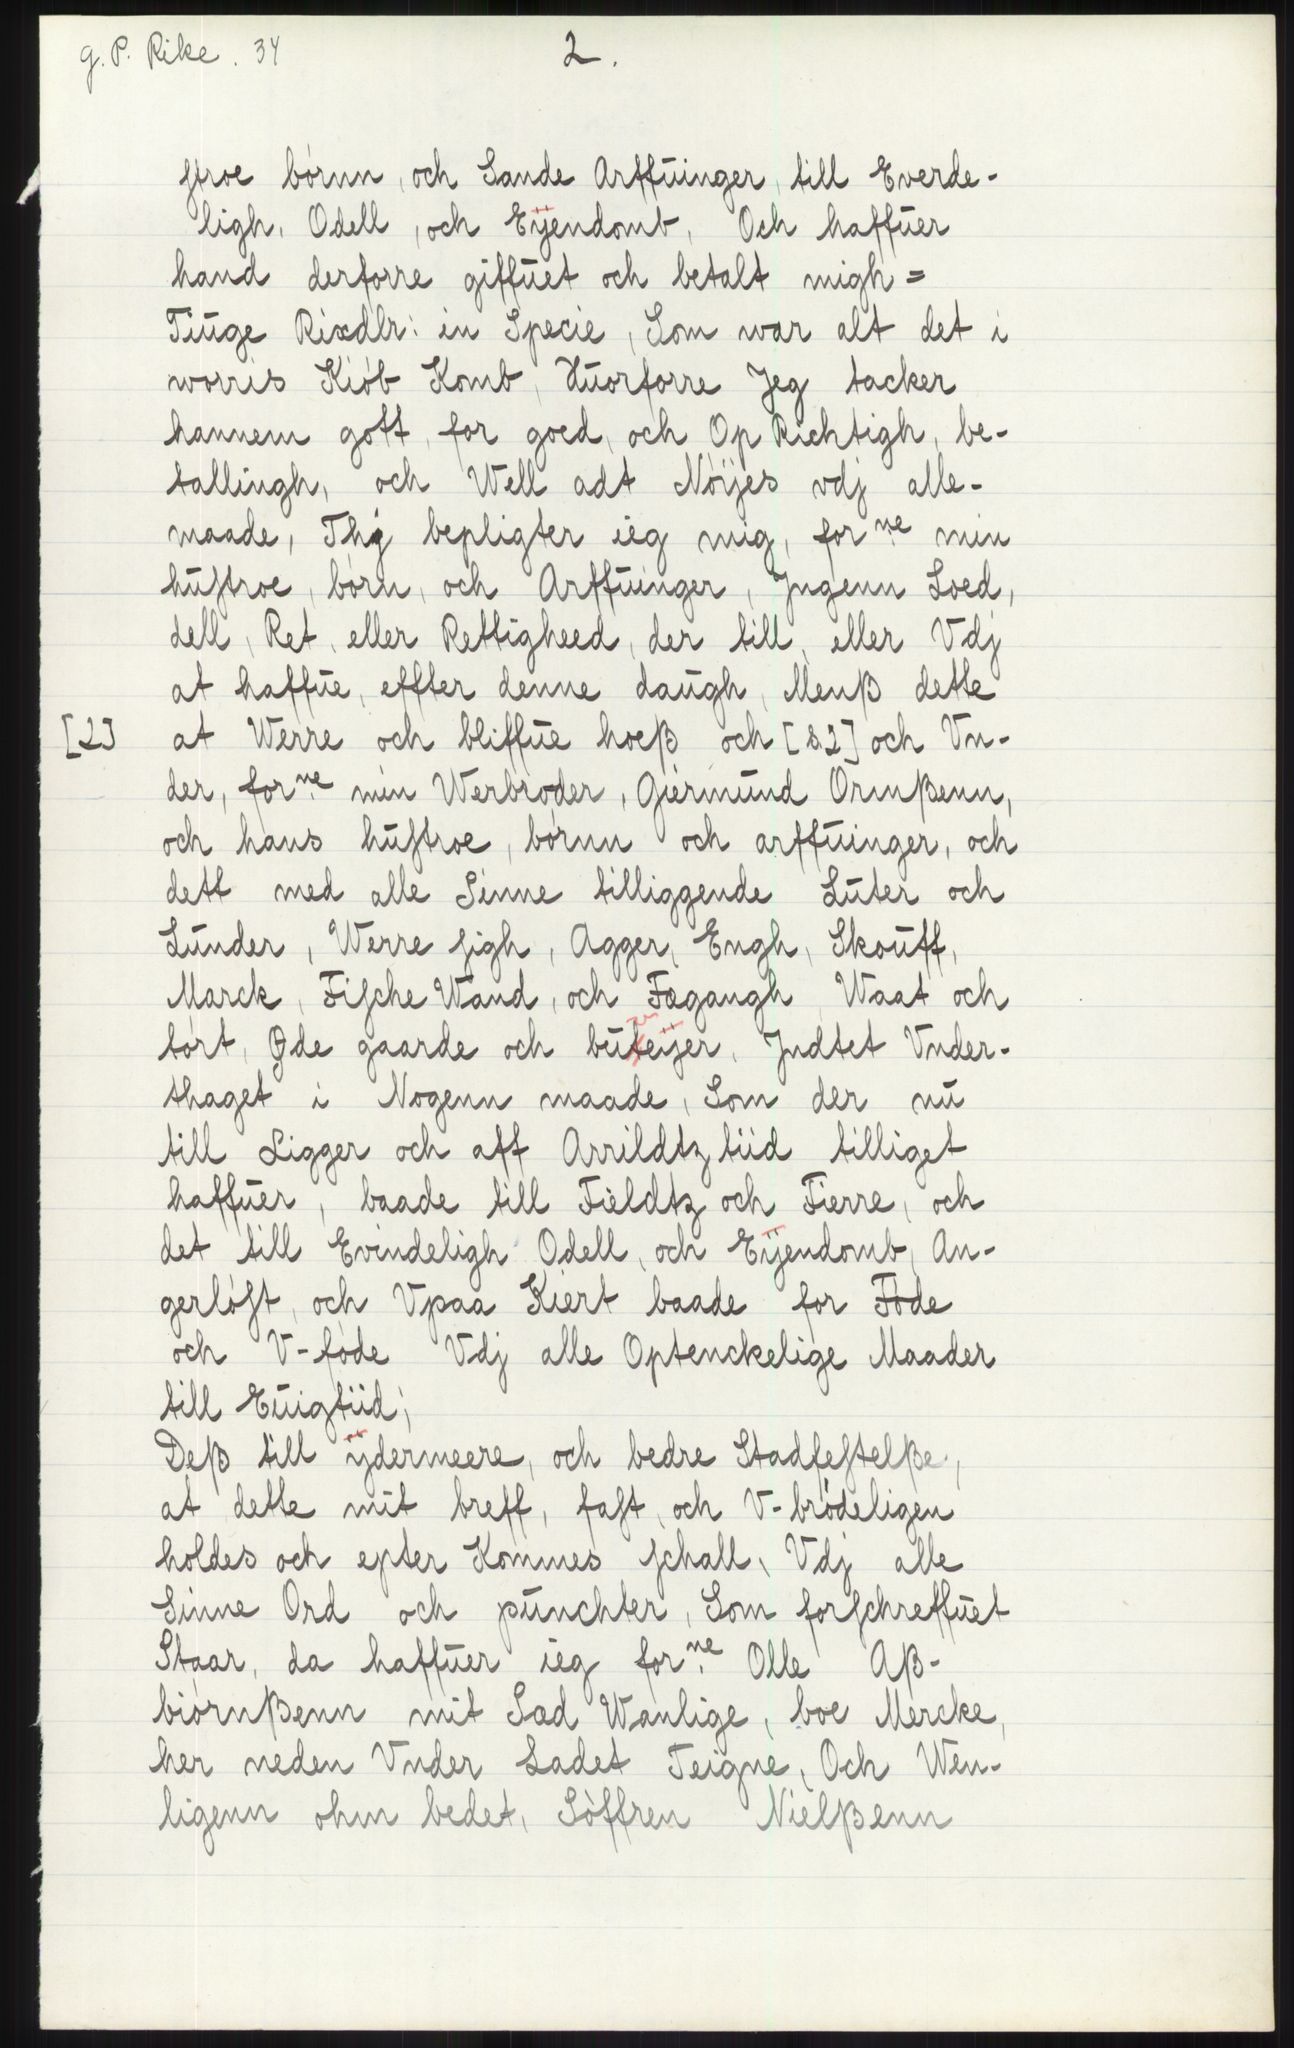 g. P. Rike. 34
2.
stroe börnn, och Sande Arffuinger, till Everde-
ligh, Odell, och Eÿendomb, Och haffuer
hand derforre giffuet och betalt migh =
Tiuge Rixdlr: in Specie, Som war alt det i
worris Kiöb Komb, Huorforre Jeg tacker
hannem gott, for goed, och Op Richtigh, be-
tallingh, och Well adt Nöÿes vdj alle-
maade, Thj bepligter ieg mig, for ne min
hustroe, börn, och Arffuinger, Jngenn Loed,
dell, Ret, eller Rettigheed, der till, eller Vdj
at haffue, effter denne daugh, Menß dette
[2] at Werre och bliffue hoeß och [s.2] och Vn-
der, for ne min Werbroder, Giermund Ormßenn,
och hans hustroe, börnn och arffuinger, och
dett med alle Sinne tilliggende Luter och
Lunder, Werre sigh, Agger, Engh, Skouff,
Marck, Fische Wand, och Fægangh, Waat och
tört, Øde gaarde och buteÿer, Jndtet Vnder-
thaget i Nogenn maade, Som der nu
till Ligger och aff Arrildtz tiid tilliget
haffuer, baade till Fieldtz och Fierre, och
det till Evindeligh Odell, och Eÿendomb, An-
gerlöst, och Vpaa Kiert baade for Föde
och V-föde Vdj alle Optenckelige Maader
till Euigtiid;
Deß till ÿdermeere, och bedre Stadfestelße,
at dette mit breff, fast, och V-brödeligen
holdes och epter Kommes schall, Vdj alle
Sinne Ord och punchter, Som forschreffuet
Staar, da haffuer ieg for ne Olle Aß-
biörnßenn mit Sæd Wanlige, boe Mercke,
her neden Vnder Ladet Teigne, Och Wen-
ligenn ohm bedet, Söffren Nielßenn